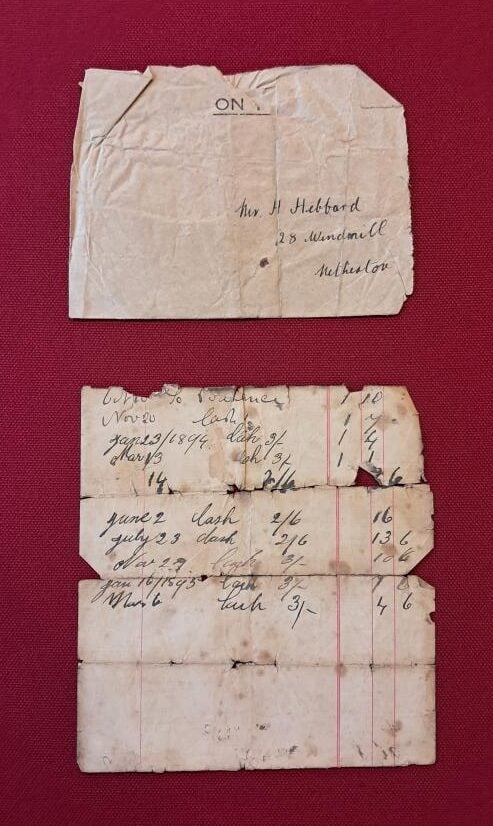 ON
Mr. H Hebbard
28 Windmill
Netherton
Balance 1 10
Nov 20 Cash 1 7
Jan 23/1894 Cash 3/- 1 4
Mar 13 Cash 3/- 1 1
14 2/6 6
June 2 Cash 2/6 16
July 23 Cash 2/6 13 6
Nov 23 Cash 3/- 10 6
Jan 16/1895 Cash 3/- 7 6
Mar 6 Cash 3/- 4 6